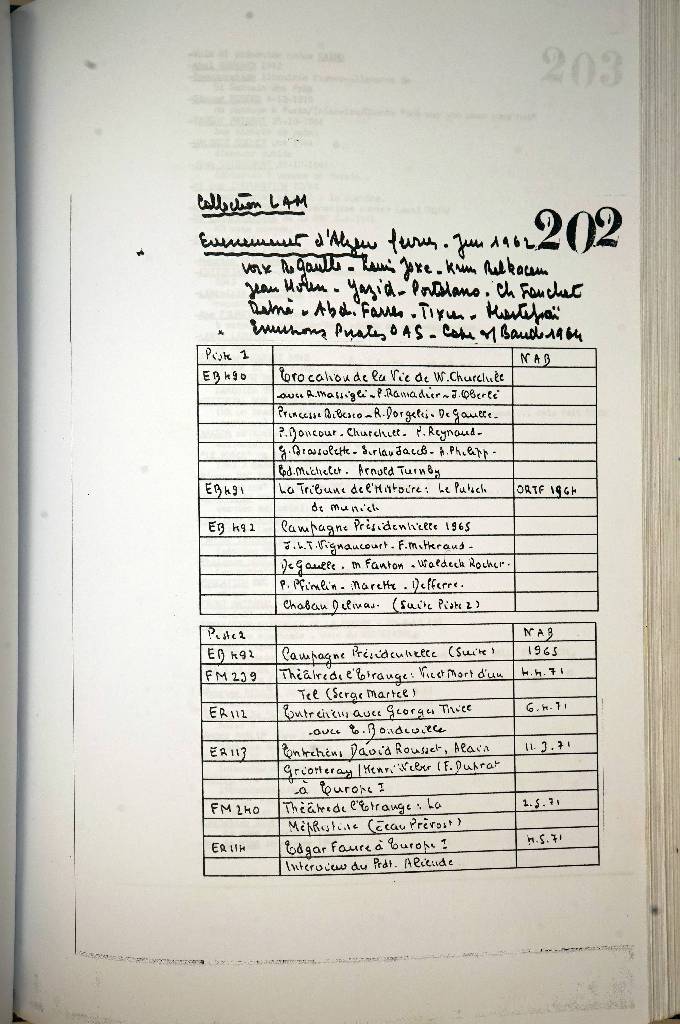 203
Collection LAM
202
Evenement d'Alger février - Juin 1962
voix De Gaulle - Louis Joxe - Krim Belkacem
Jean Morin - Yazid - Portolano - Ch Fouchet
Debré - Abd. Farès - Tixier - Mostefaï
Emissions Pirates OAS - Case of Baud 1964
Piste 1 NAB
EB 490 Evocation de la Vie de W. Churchill
avec R. Massigli - P. Ramadier - J. Oberlé
Princesse Bibesco - R. Dorgelès - De Gaulle -
P. Boncour - Churchill - P. Reynaud -
G. Brossolette - Sirlau Jacob - A. Philipp -
Ed. Michelet - Arnold Turnby
EB 491 La Tribune de l'Histoire : Le Putsch ORTF 1964
de Munich
EB 492 Campagne Présidentielle 1965
J.L.T. Vignancourt - F. Mitterand -
De Gaulle - M Fanton - Waldeck Rocher -
P. Pfimlin - Marette - Defferre -
Chaban Delmas - (Suite Piste 2)
Piste 2 NAB
EB 492 Campagne Présidentielle (Suite) 1965
FM 239 Théâtre de l'Etrange : Vie et Mort d'un 4.4.71
Tel (Serge Martel)
ER 112 Entretiens avec Georges 6.4.71
avec E. Bondeville
ER 113 Entretiens David Rousset, Alain 11.3.71
Griotteray / Henri Weber / F. Duprat
à Europe I
FM 240 Théâtre de l'Etrange : La 2.5.71
Méphistine (Jean Prévost)
ER 114 Edgar Faure à Europe I 4.5.71
Interview du Prdt. Aliende